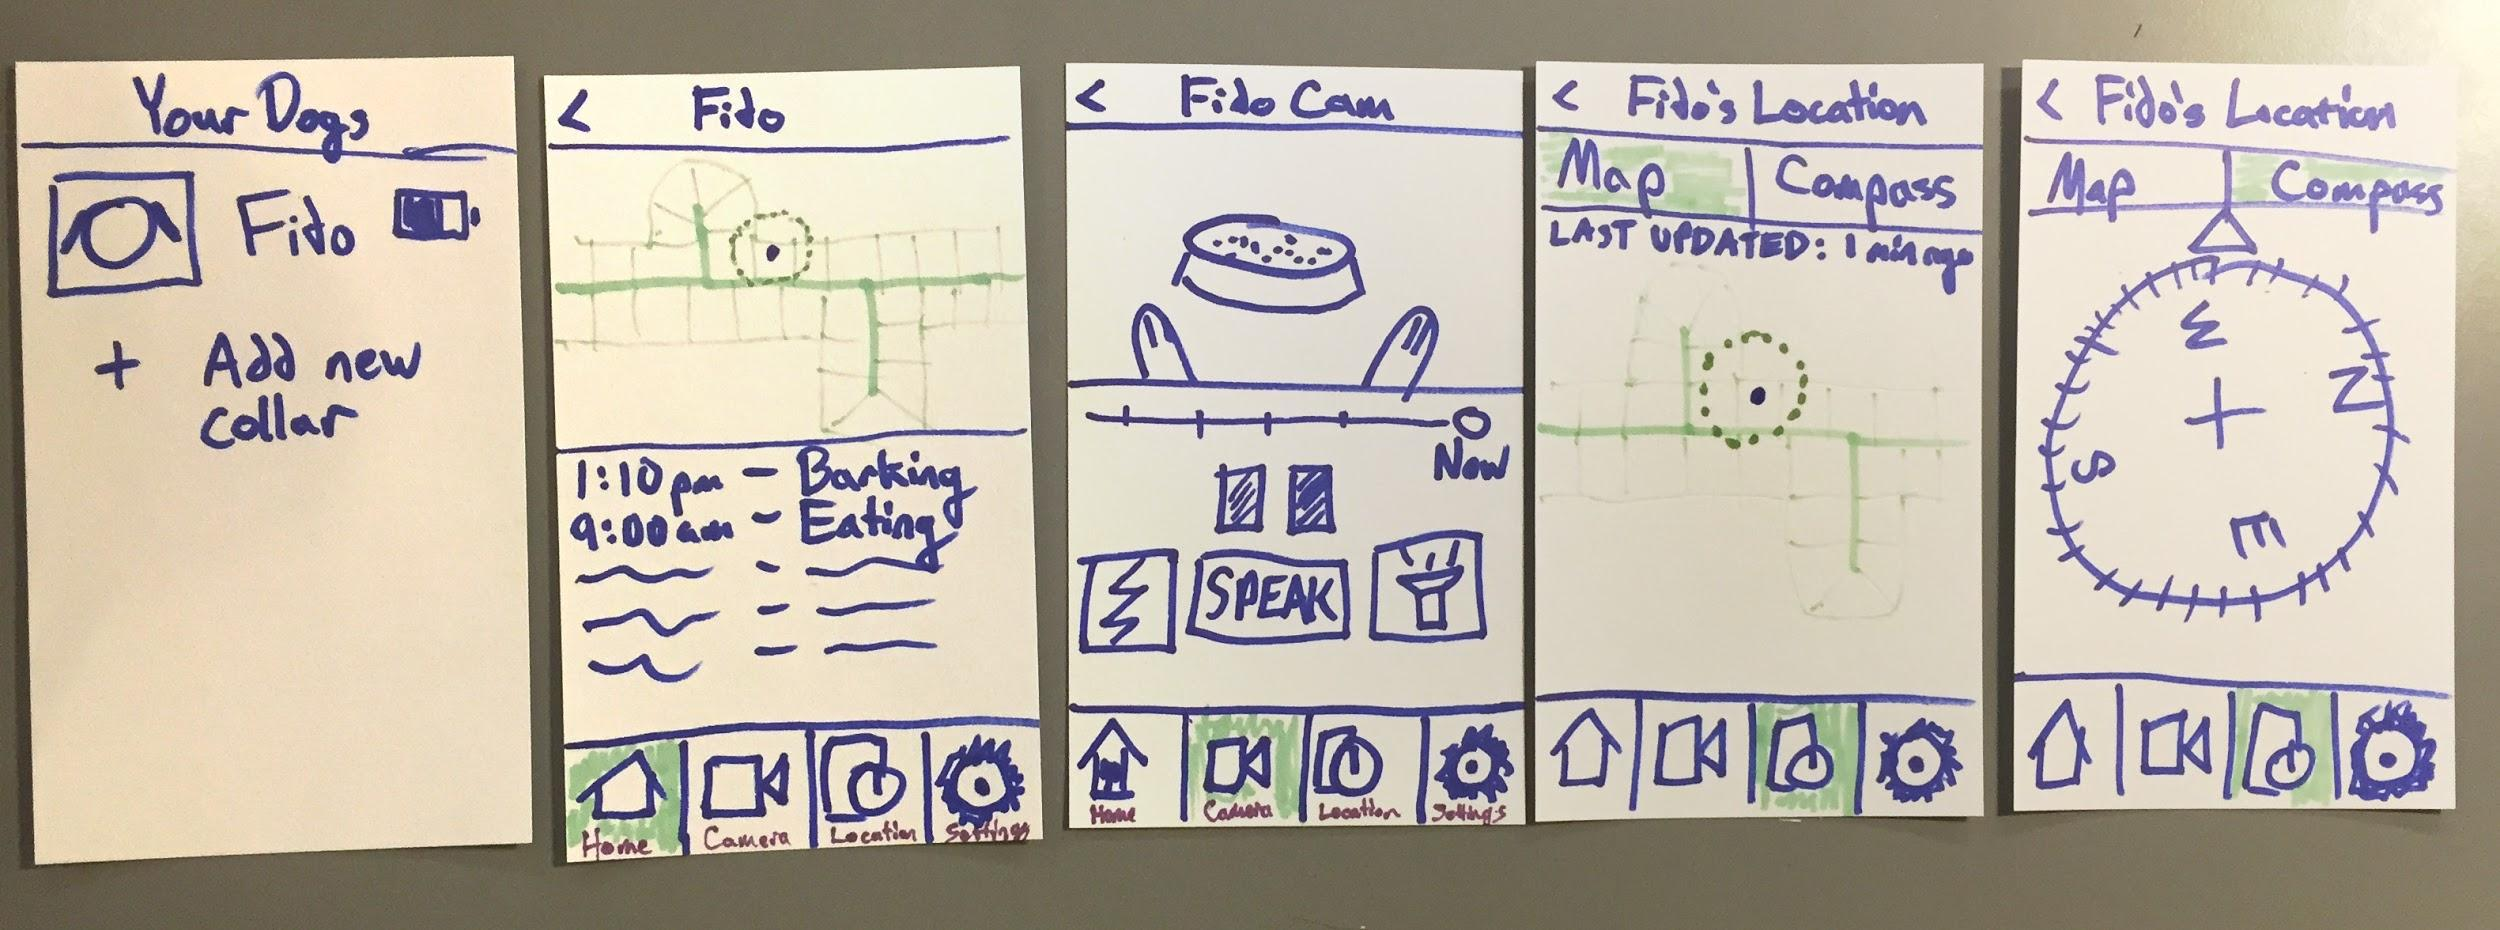 Your Dogs
Fido
+ Add new
collar
< Fido
1:10pm - Barking
9:00am - Eating
Home Camera Location Settings
< Fido Cam
Now
SPEAK
Home Camera Location Settings
< Fido's Location
Map Compass
LAST UPDATED: 1 min ago
< Fido's Location
Map Compass
W
N
S
E